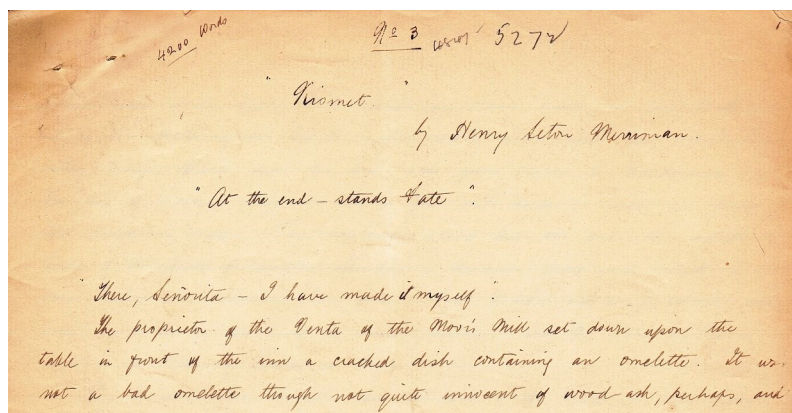 4200 Words
No 3
5272
"Kismet."
by Henry Seton Merriman.
"At the end – stands Fate".
"There, Señorita – I have made it myself".
The proprietor of the Venta of the Moor's Mill set down upon the
table in front of the inn a cracked dish containing an omelette. It
not a bad omelette though not quite innocent of wood ash, perhaps, and